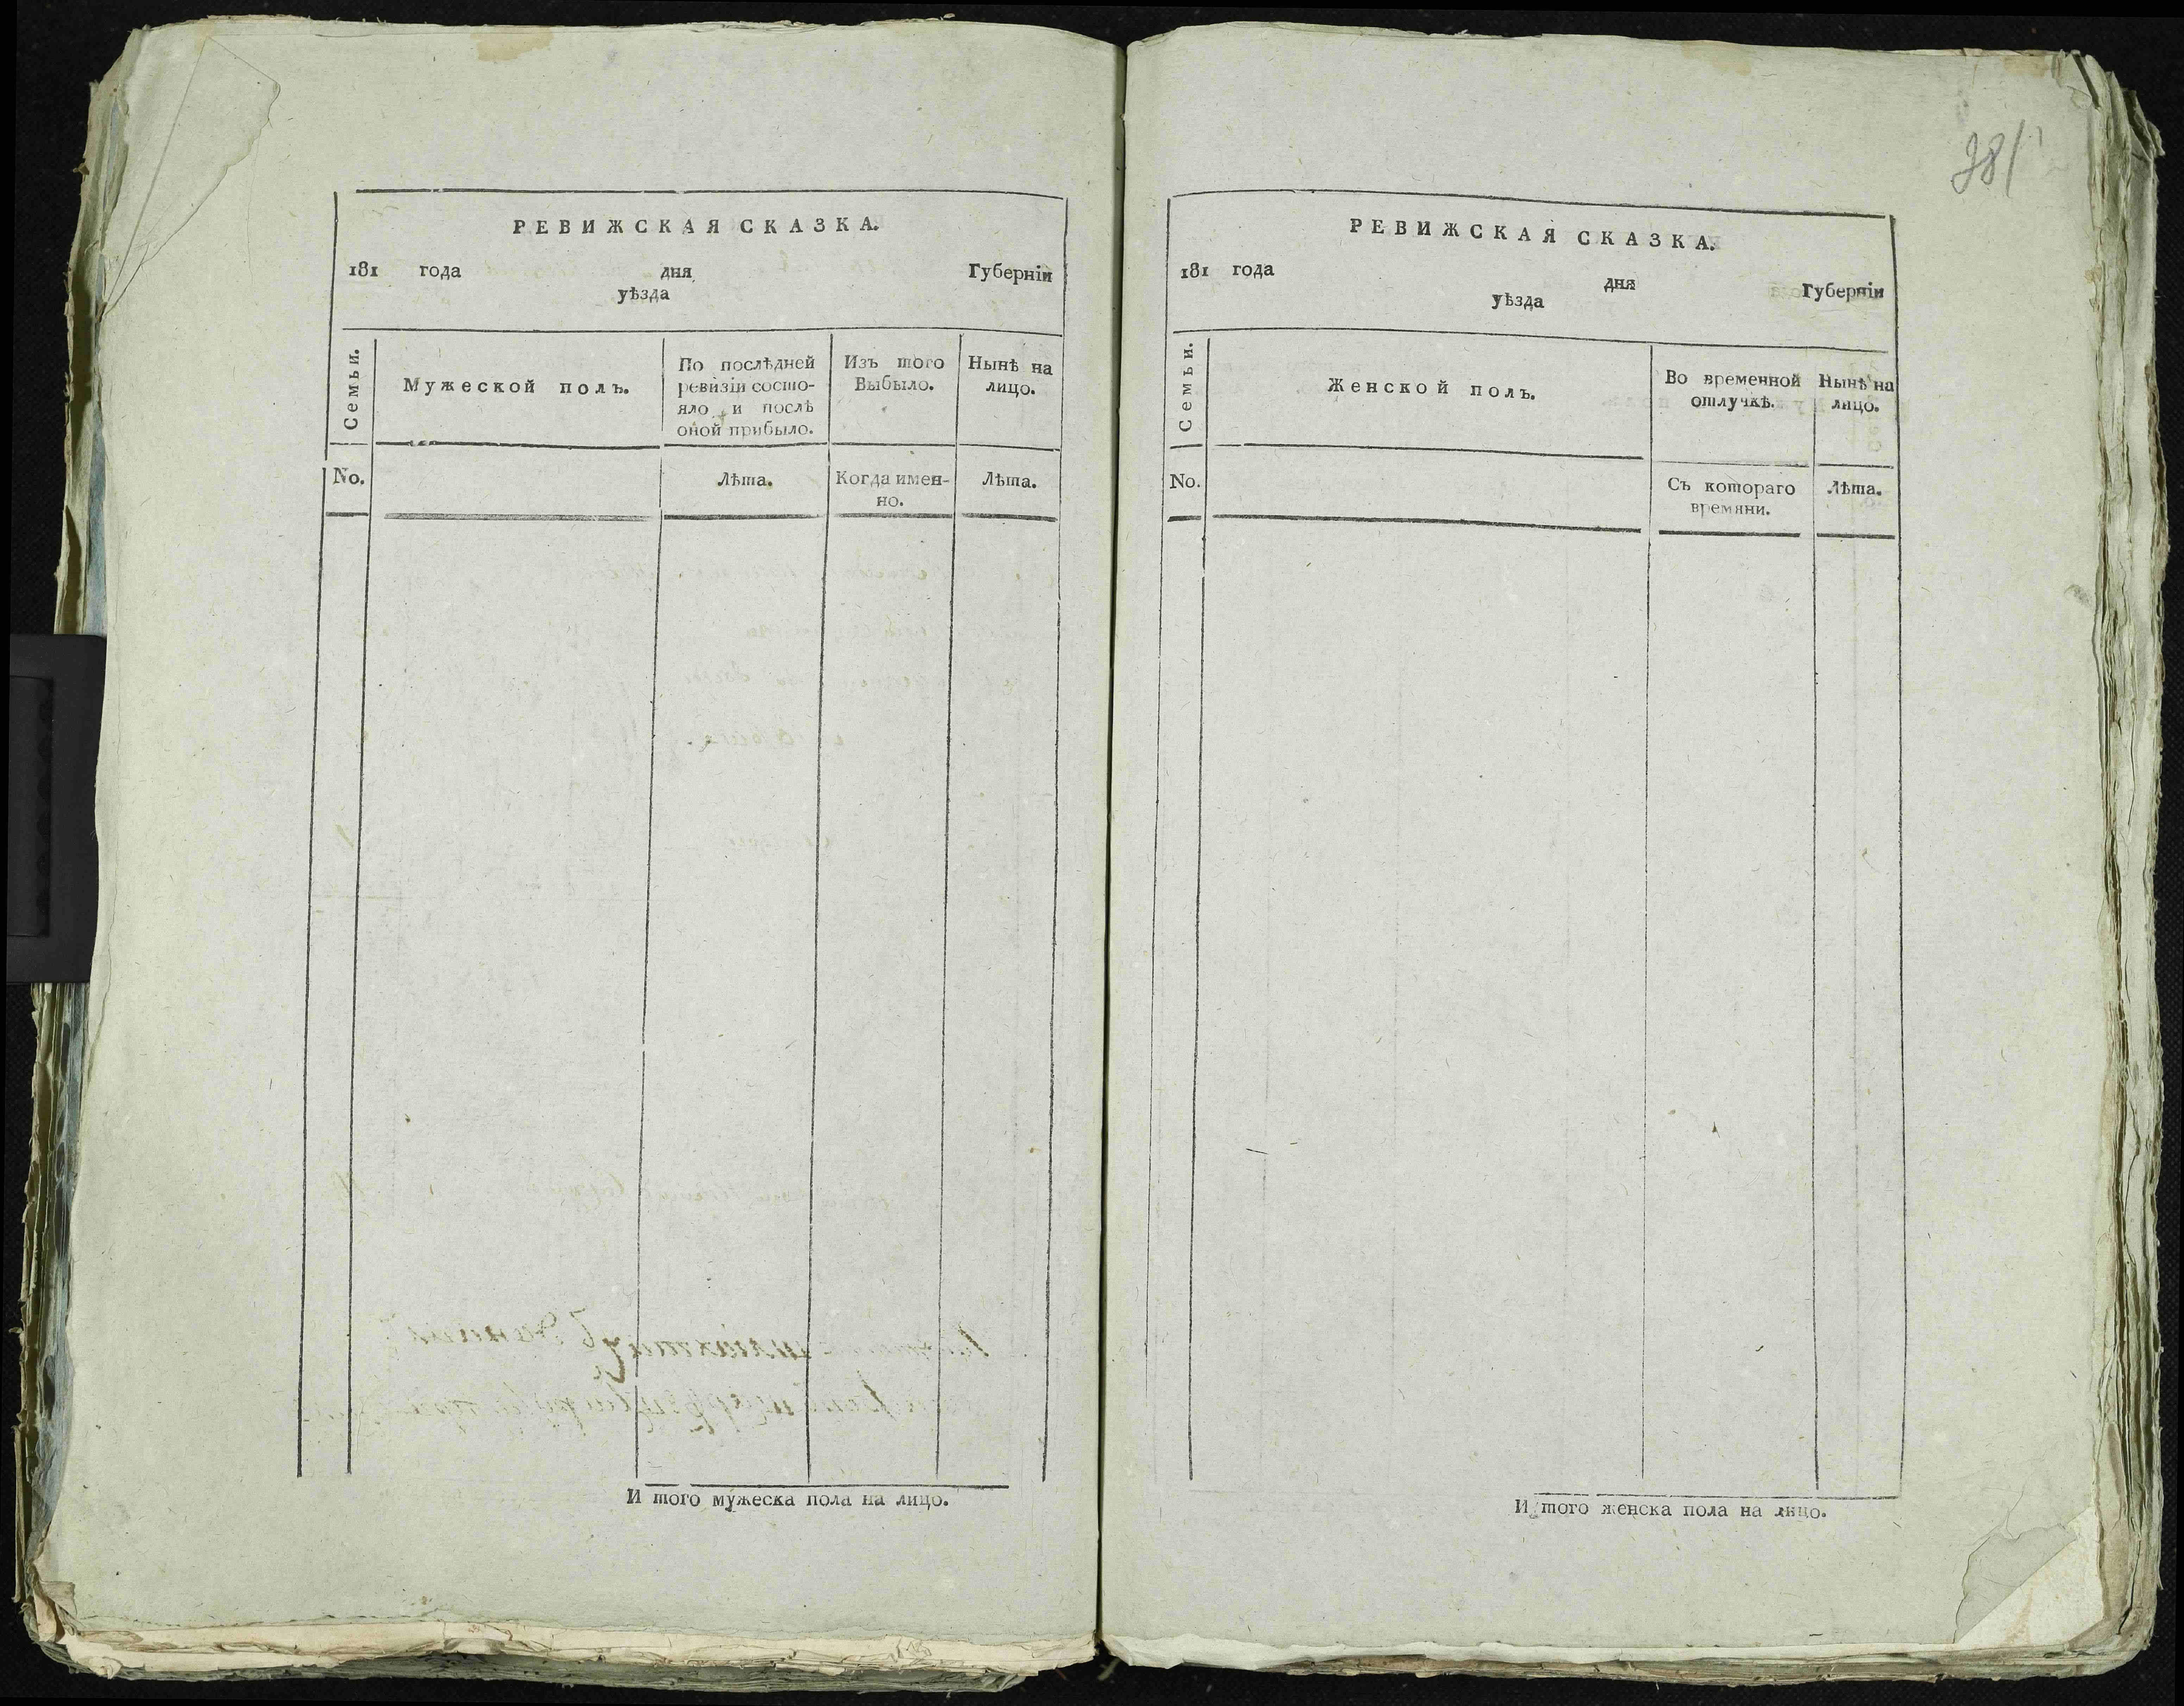 РЕВИЖСКАЯ СКАЗКА.
181 года дня Губернїи
уѣзда
Семьи.
Мужеской полъ.
По послѣдней
ревизіи состо-
яло и послѣ
оной прибыло.
Изъ того
Выбыло.
Нынѣ на
лицо.
No.
Лѣта.
Когда имен-
но.
Лѣта.
И того мужеска пола на лицо.
381
РЕВИЖСКАЯ СКАЗКА.
181 года дня Губернїи
уѣзда
Семьи.
Женской полъ.
Во временной
отлучкѣ.
Нынѣ на
лицо.
No.
Съ котораго
времяни.
Лѣта.
И того женска пола на лицо.